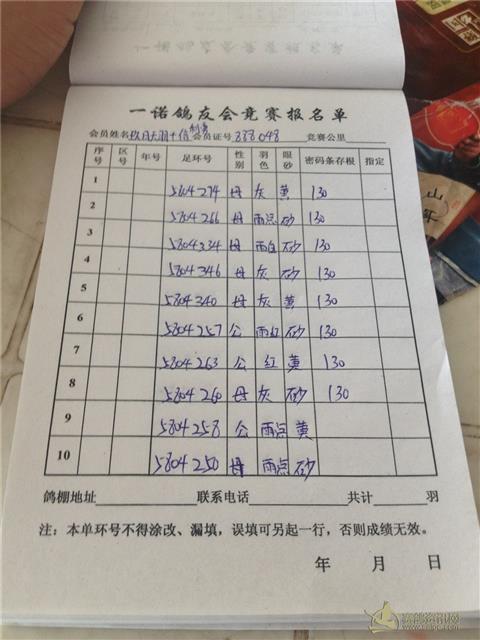 一诺鸽友会竞赛报名单
会员姓名 会员证号 888048 竞赛公里
序号 区号 年号 足环号 性别 羽色 眼砂 密码条存根 指定
1 5804274 母 灰 黄 130
2 5804266 母 雨点 砂 130
3 5804334 母 雨白 砂 130
4 5804346 母 灰 砂 130
5 5804340 母 灰 黄 130
6 5804257 公 砂 130
7 5804263 公 红 黄 130
8 5804260 母 灰 砂 130
9 5804258 公 雨点 黄
10 5804250 母 雨点 砂
鸽棚地址 联系电话 共计 羽
注：本单环号不得涂改、漏填，误填可另起一行，否则成绩无效。
年 月 日